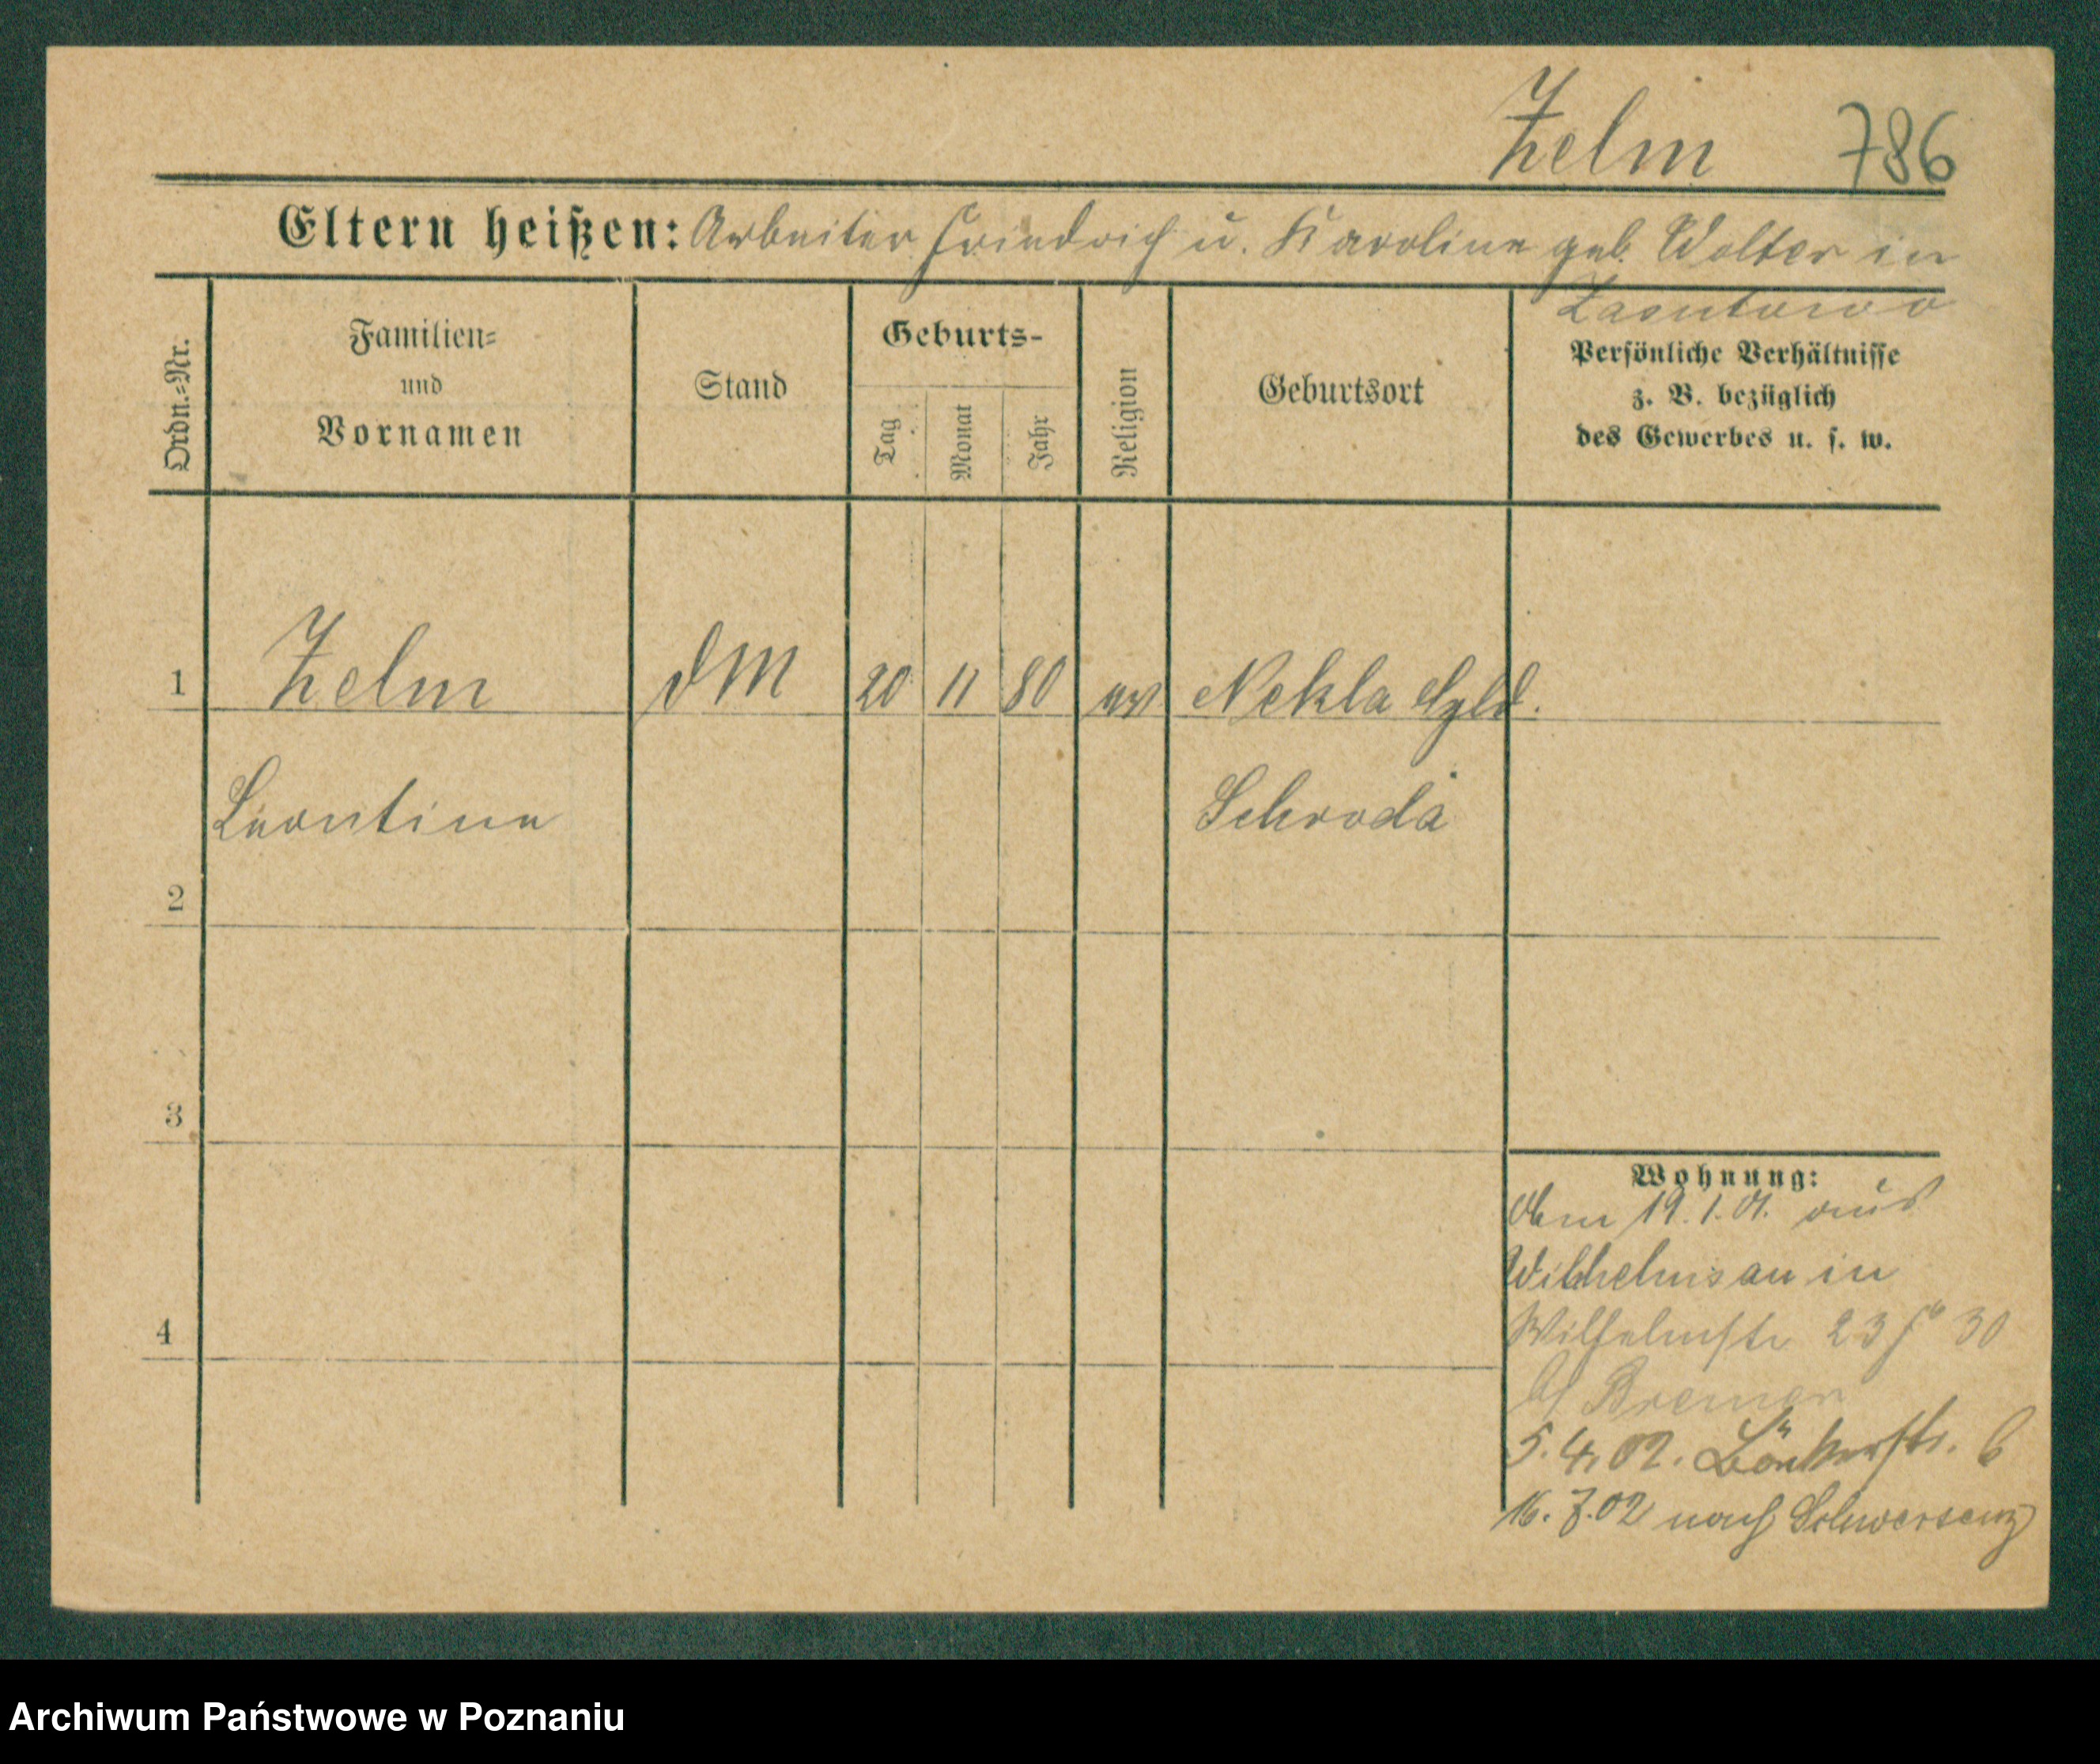 Zelm 786
Eltern heißen: Arbeiter Friedrich u. Karoline geb. Wolter in
Ordn.=Nr.
Familien=
und
Vornamen
Stand
Geburts-
Tag
Monat
Jahr
Religion
Geburtsort
Persönliche Verhältnisse
z. B. bezüglich
des Gewerbes u. s. w.
1 Zelm DM 20 11 80 ev Nekla Hgld.
Leontine Schroda
2
3
4
Wohnung:
19.1.01. aus
Wilhelmsau in
Wilhelmstr 23 30
Bremer
5.4.02. Bäckerstr. 6
16.7.02 nach Schwersenz
Archiwum Państwowe w Poznaniu